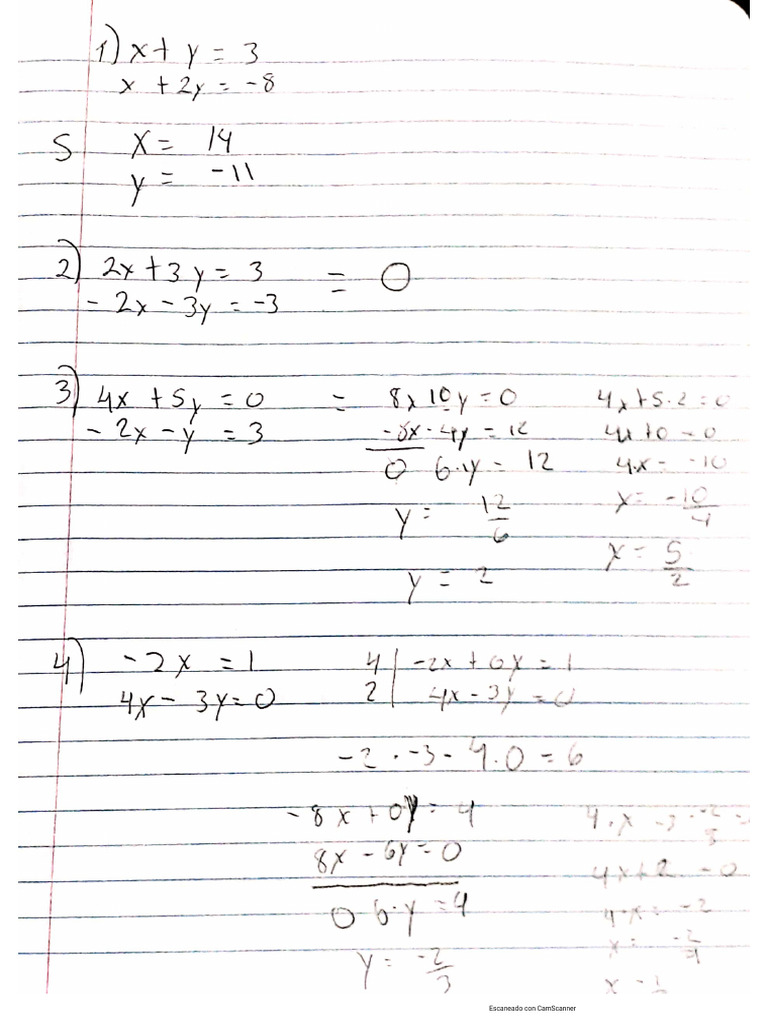 1) x + y = 3
x + 2y = -8
S x = 14
y = -11
2) 2x + 3y = 3 = 0
- 2x - 3y = -3
3) 4x + 5y = 0 =
- 2x - y = 3
8x 10y = 0
-8x - 4y = 12
0 6·y = 12
y = 12/6
y = 2
4x + 5·2 = 0
4x + 0 = 0
4x = -10
x = -10/4
x = 5/2
4) -2x = 1
4x - 3y = 0
4 | -2x + 0x = 1
2 | 4x - 3y = 0
-2 · -3 - 4.0 = 6
-8x + 0y = 4
8x - 6y = 0
0 6·y = 4
y = -2/3
4·x - 3·-2/3 =
4x + 2 = 0
4·x = -2
x = -2/4
Escaneado con CamScanner